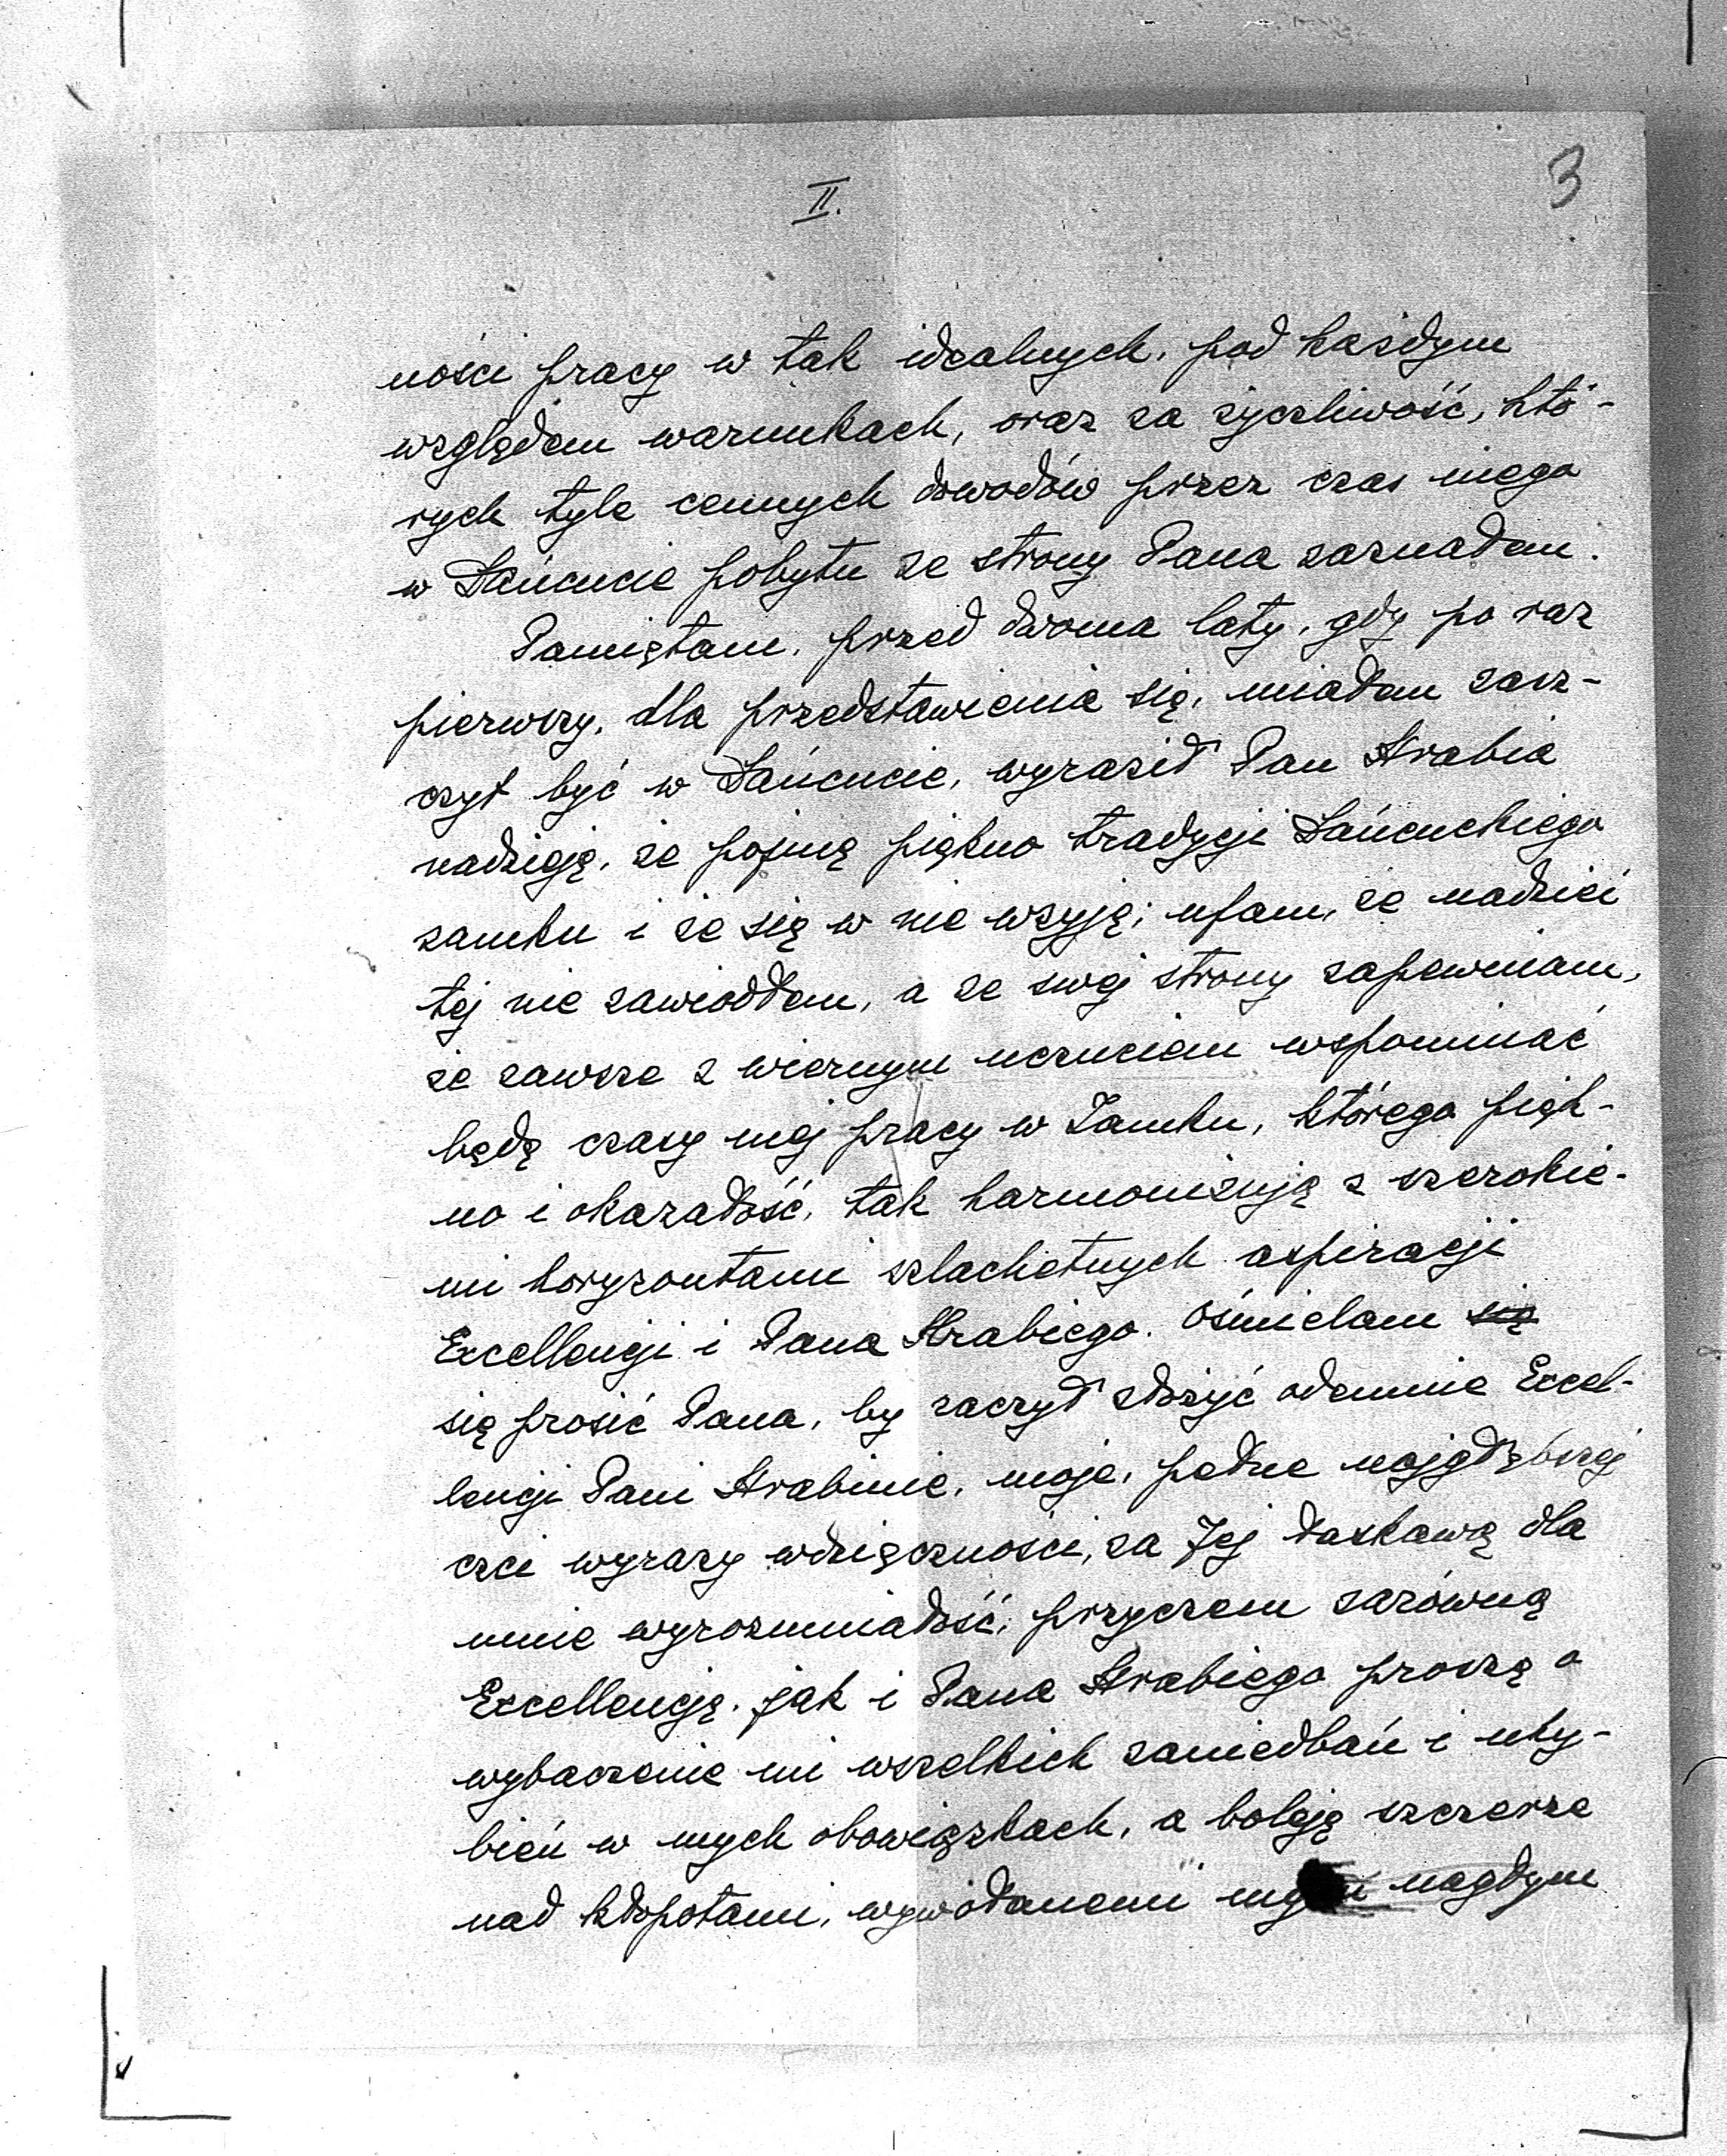 II.
3
ności pracy w tak idealnych, pod każdym
względem warunkach, oraz za życzliwość, któ-
rych tyle cennych dowodów przez czas mego
w Łańcucie pobytu ze strony Pana zaznałem.
Pamiętam, przed dwoma laty, gdy po raz
pierwszy, dla przedstawienia się, miałem zasz-
czyt być w Łańcucie, wyraził Pan Hrabia
nadzieję, że pojmę piękno tradycji Łańcuckiego
zamku i że się w nie wżyję; ufam, że nadziei
tej nie zawiodłem, a ze swej strony zapewniam,
że zawsze z wiernym uczuciem wspominać
będę czasy mej pracy w Zamku, którego pięk-
no i okazałość, tak harmonizują z szerokie-
mi horyzontami szlachetnych aspiracji
Excellencji i Pana Hrabiego. Ośmielam się
się prosić Pana, by raczył złożyć odemnie Excel-
lencji Pani Hrabinie, moje, pełne najgłębszej
czci wyrazy wdzięczności, za Jej łaskawą dla
mnie wyrozumiałość, przyczem zarówną
Excellencję, jak i Pana Hrabiego proszę o
wybaczenie mi wszelkich zaniedbań i uchy-
bień w mych obowiązkach, a boleję szczerze
nad kłopotami, wywołanemi mym nagłym